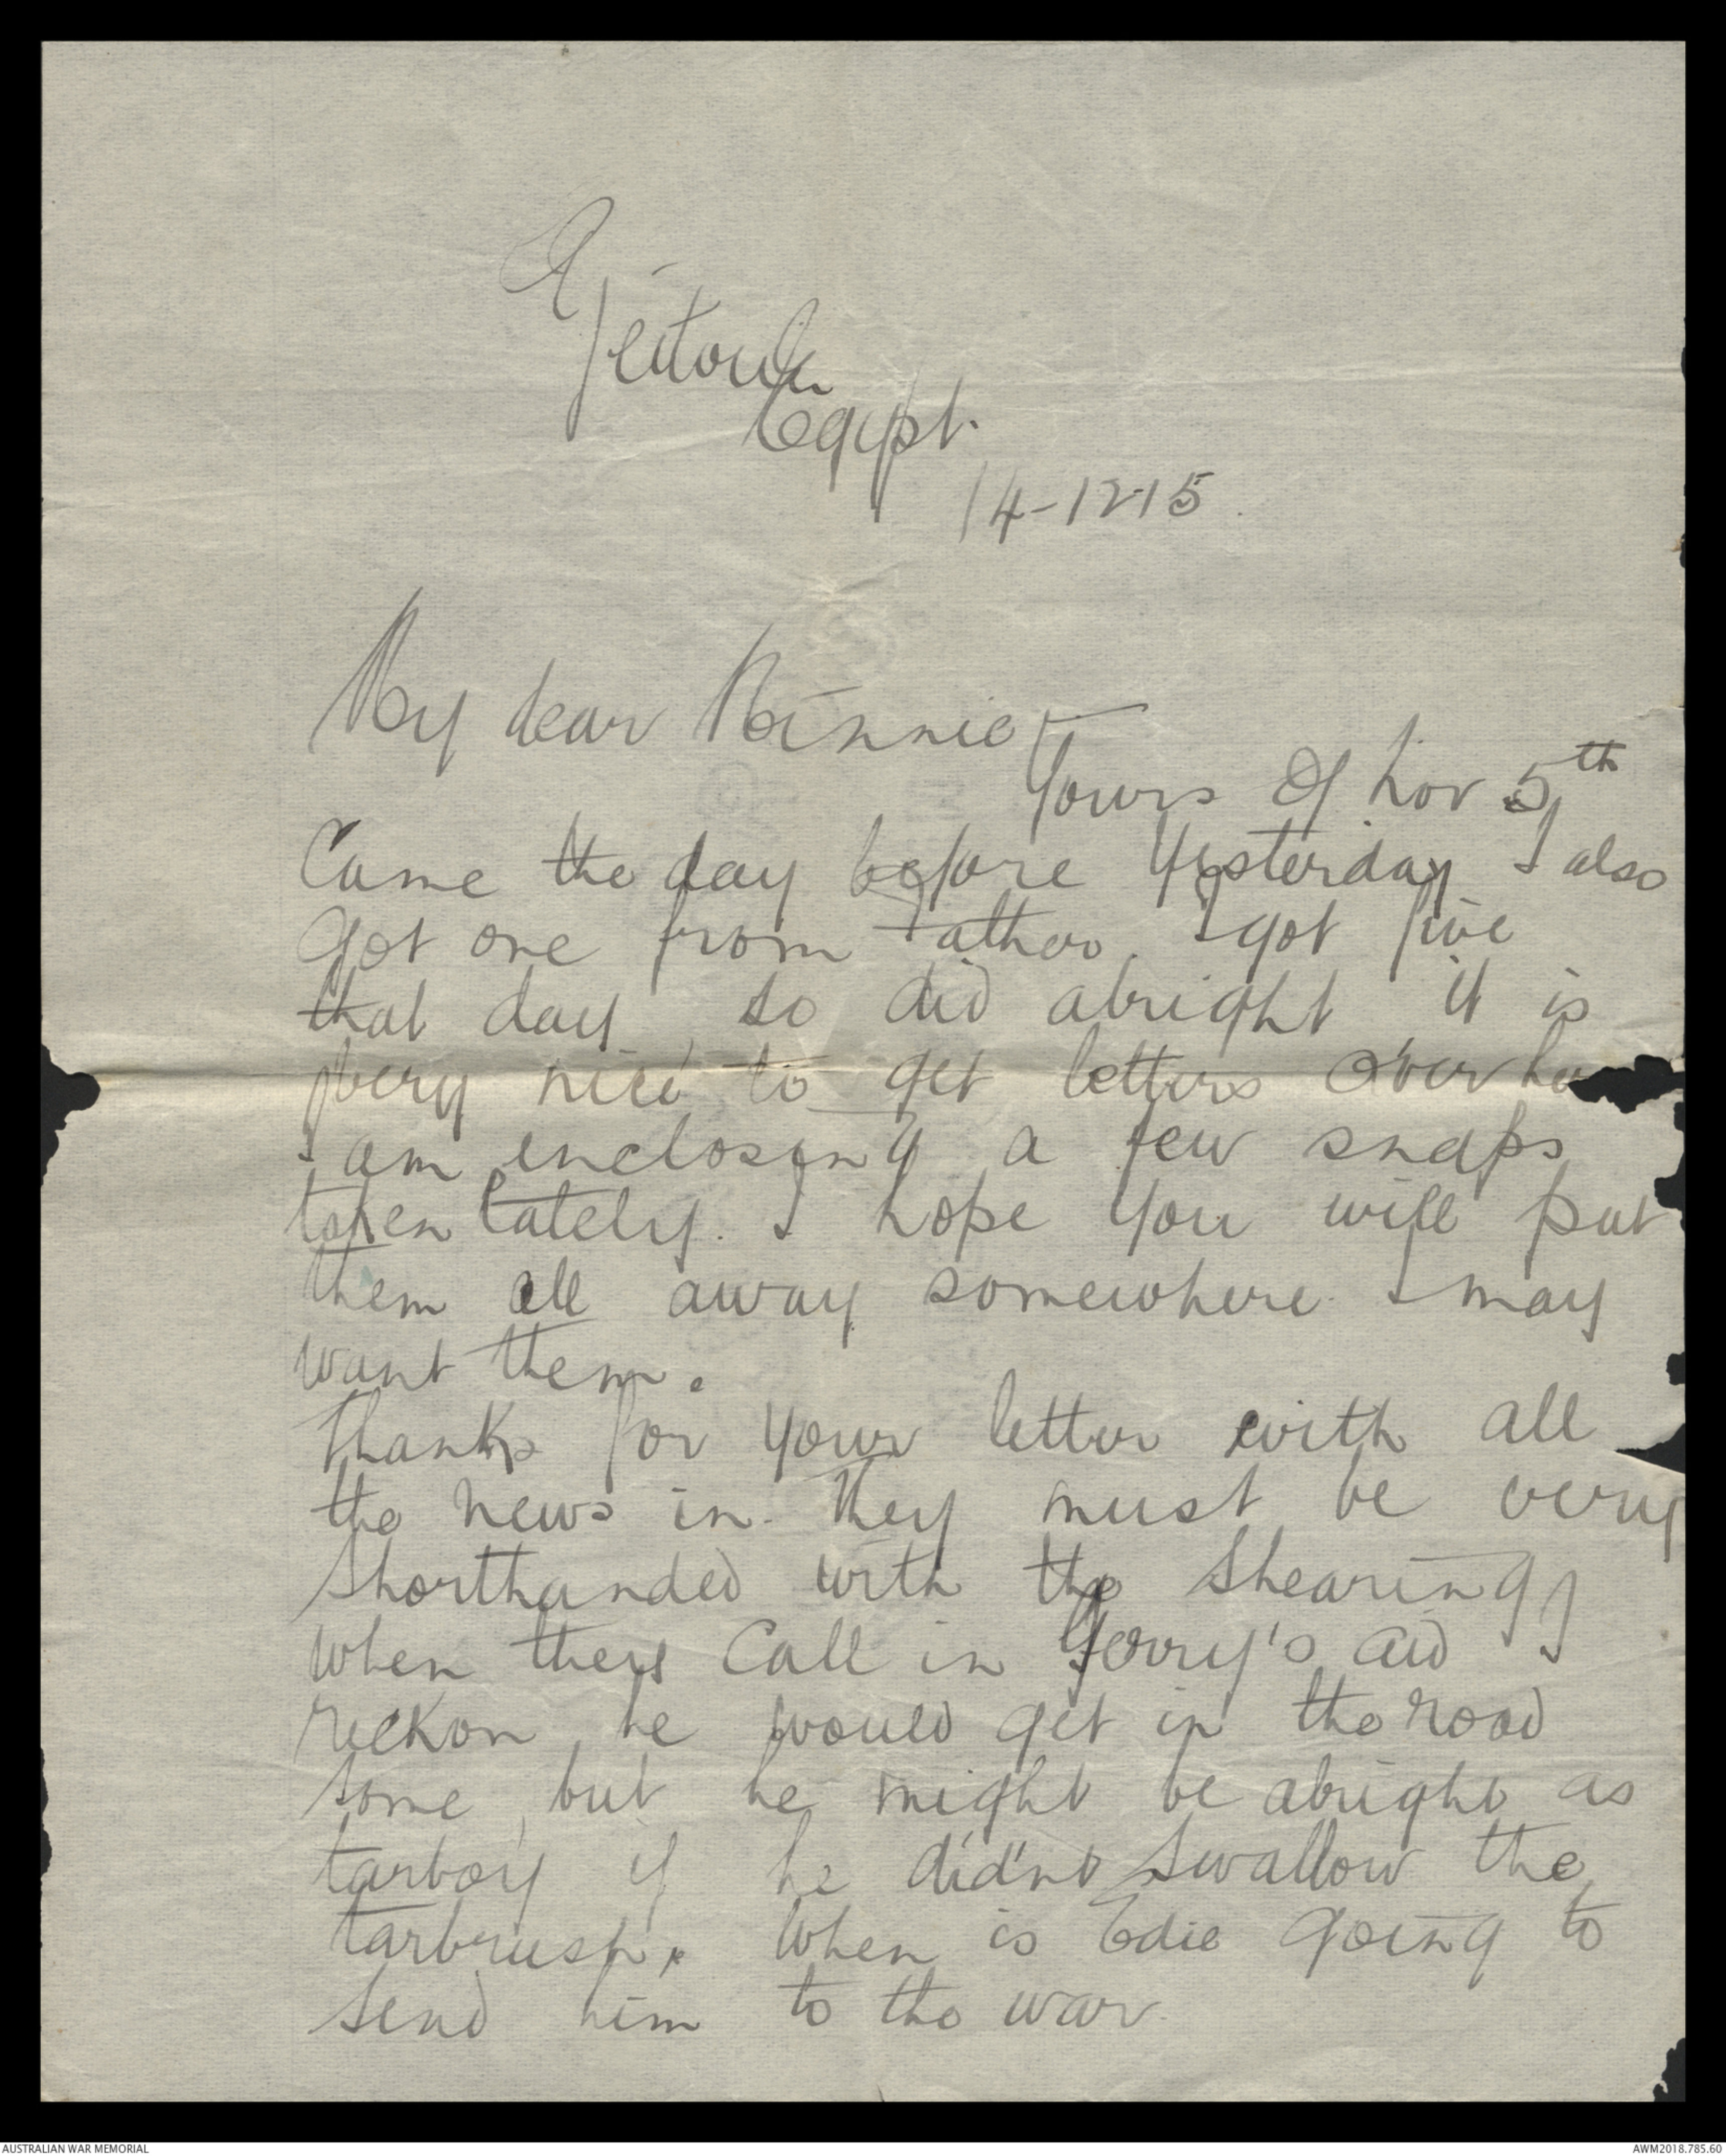 Zeitoun
Egypt.
14-12-15.
My dear Minnie,
Yours of Nov 5th
Came the day before Yesterday I also
Got one from Father. I got five
that day, so did alright it is
very nice to get letters over
I am enclosing a few snaps
taken lately. I hope you will put
them all away somewhere. I may
want them.
Thanks for your letter with all
the news in. They must be very
Shorthanded with the Shearing
when they Call in Gerry's aid I
reckon he would get in the road
some, but he might be alright as
tarboy if he did'nt Swallow the
tarbrush. When is Edie going to
send him to the war.
AUSTRALIAN WAR MEMORIAL
AWM2018.785.60